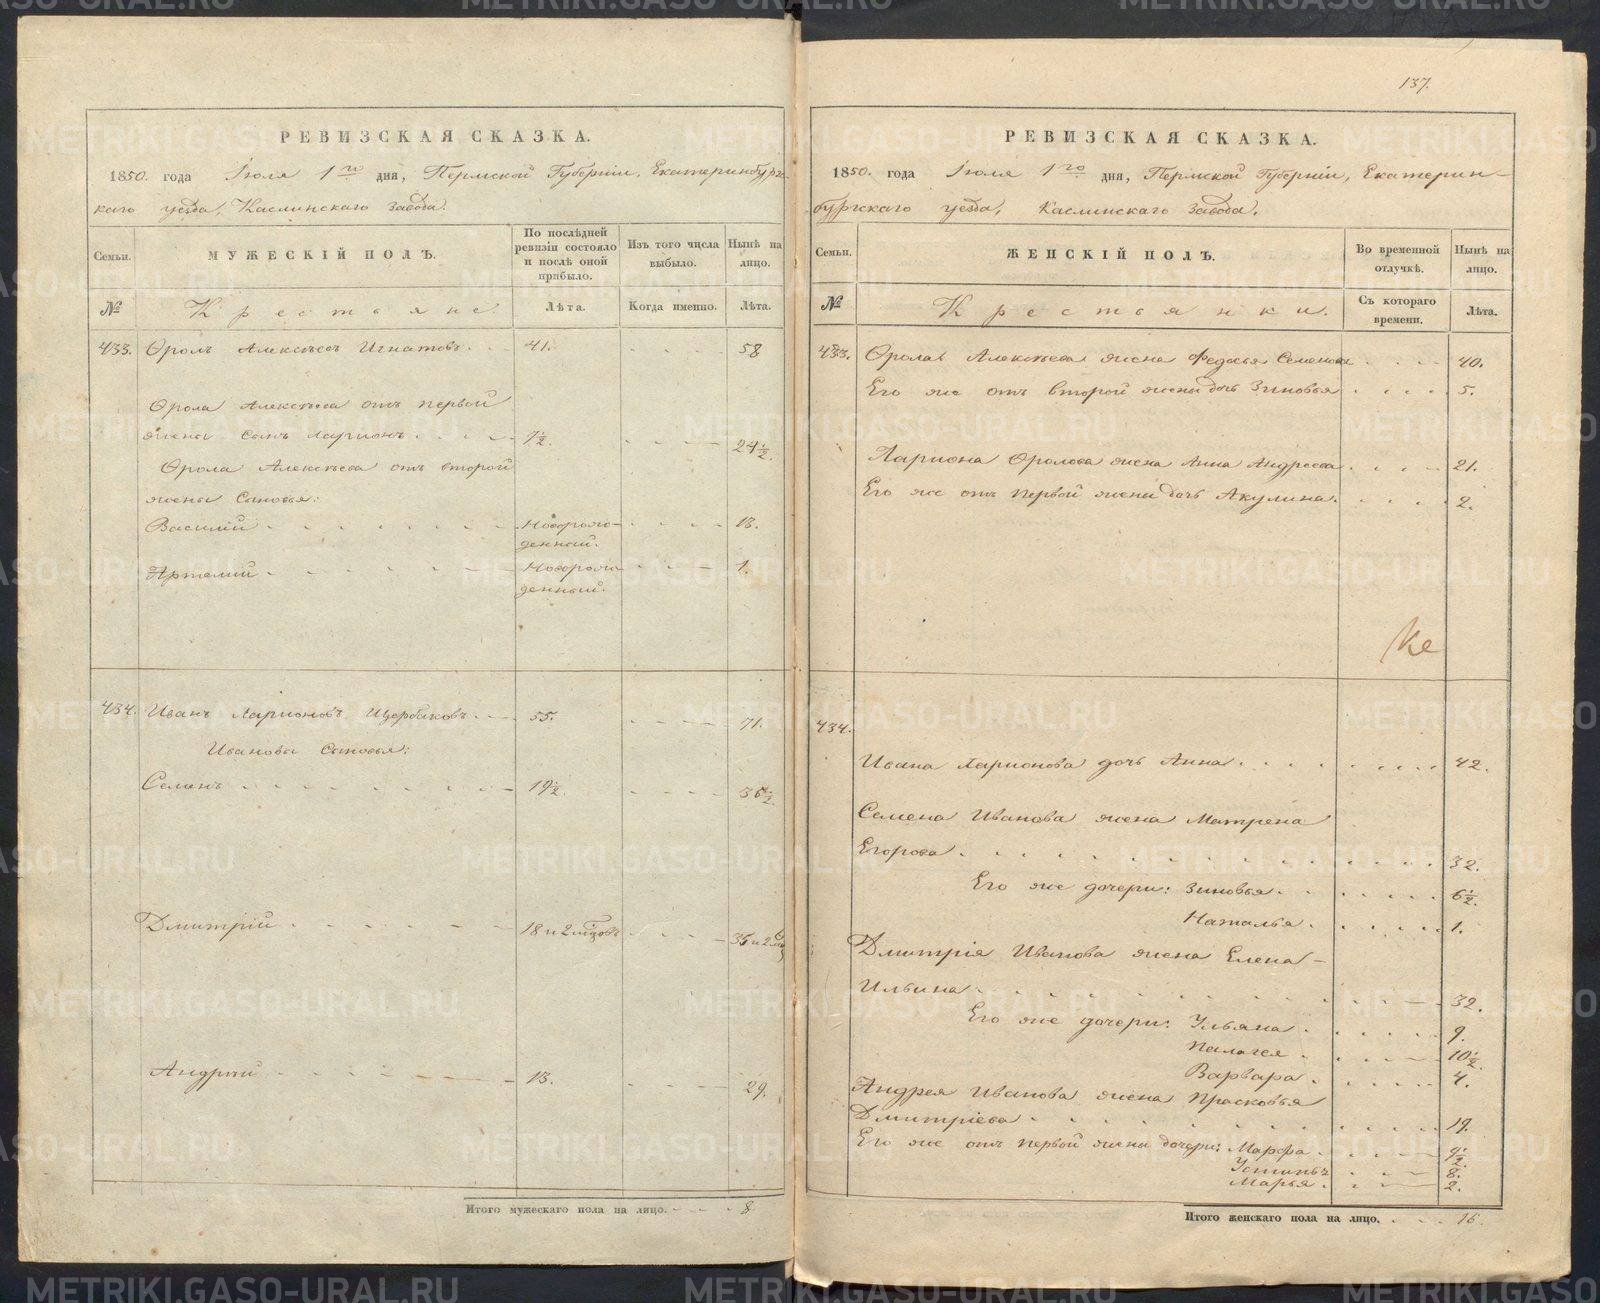 РЕВИЗСКАЯ СКАЗКА.
1850. года Іюля 1го дня, Пермской Губерніи, Екатеринбург-
скаго уезда, Каслинскаго завода.
Семьи.
МУЖЕСКІЙ ПОЛЪ.
По послѣдней ревизіи состояло и послѣ оной прибыло.
Изъ того числа выбыло.
Нынѣ на лицо.
№
Крестьяне.
Лѣта.
Когда именно.
Лѣта.
433. Фролъ Алексѣевъ Игнатовъ 41. 58
Фрола Алексѣева отъ первой
жены сынъ Ларионъ 7½. 24½.
Фрола Алексѣева отъ второй
жены Сыновья:
Василій Новорож-
денный. 13.
Артемій Новорож-
денный. 1.
434. Иванъ Ларионовъ Щербаковъ 55. 71.
Ивановы Сыновья:
Семенъ 19½. 35½.
Дмитрій 18 и 2 мѣсяцовъ
Андрей 13. 29.
Итого мужескаго пола на лицо. 8
137.
РЕВИЗСКАЯ СКАЗКА.
1850. года Іюля 1го дня, Пермской Губерніи, Екатерин-
бургскаго уезда, Каслинскаго завода.
Семьи.
ЖЕНСКІЙ ПОЛЪ.
Во временной отлучкѣ.
Нынѣ на лицо.
№
Крестьянки.
Съ котораго времени.
Лѣта.
433. Фрола Алексѣева жена Федосья Семенова 40.
Его же отъ второй жены дочь Зиновья 5.
Лариона Фролова жена Анна Андреева 21.
Его же отъ первой жены дочь Акулина. 2.
434.
Ивана Ларионова дочь Анна 42.
Семена Иванова жена Матрена
Егорова 32.
Его же дочери: Зиновья 6½.
Наталья 1.
Дмитрія Иванова жена Елена
Ильина 32.
Его же дочери: Ульяна 9.
Палагея 10½.
Варвара 4.
Андрея Иванова жена Прасковья
Дмитріева 19.
Его же отъ первой жены дочери: Марфа 9½.
Устинья 8.
Марья 2.
Итого женскаго пола на лицо. 15.
METRIKI.GASO-URAL.RU